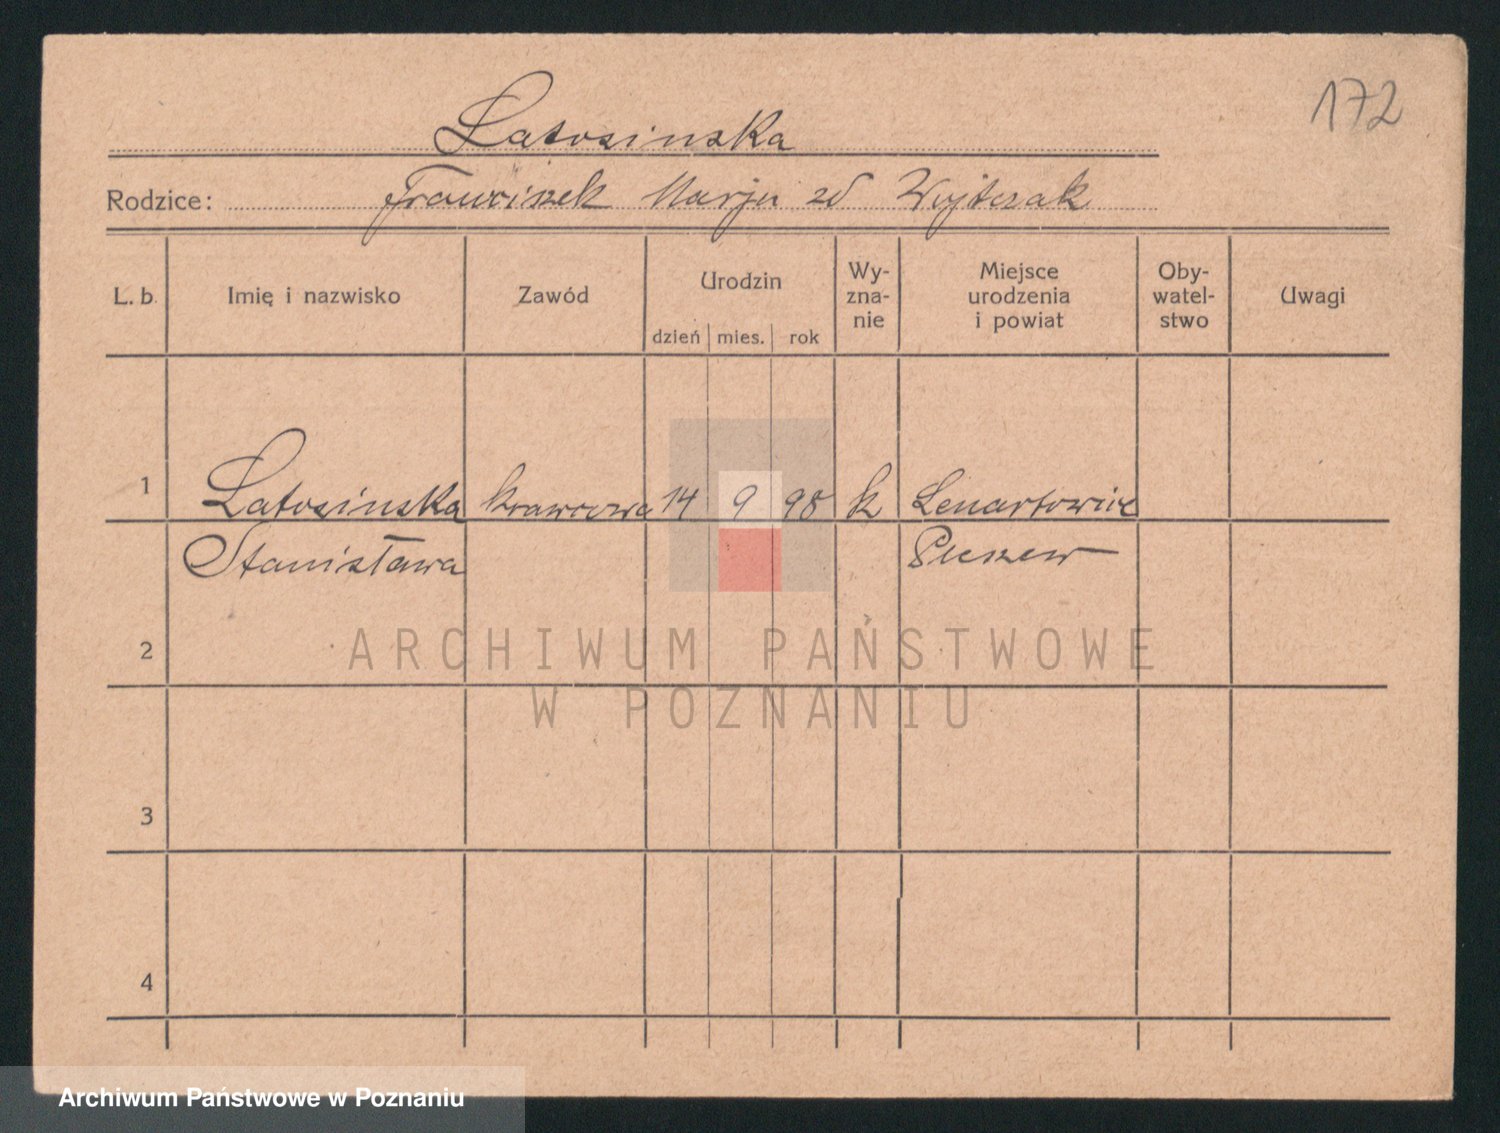 172
Latosinska
Rodzice: Franciszek Marja zd Wojtczak
L. b. Imię i nazwisko Zawód Urodzin dzień mies. rok Wy-zna-nie Miejsce urodzenia i powiat Oby-watel-stwo Uwagi
1 Latosinska krawcowa 14 9 98 k Lenartowice
Stanisława Pleszew
2
ARCHIWUM PAŃSTWOWE
W POZNANIU
3
4
Archiwum Państwowe w Poznaniu